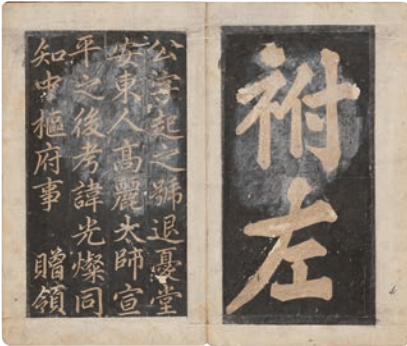 祔左
公字起之號退憂堂
安東人高麗太師宣
平之後考諱光燦同
知中樞府事 贈領